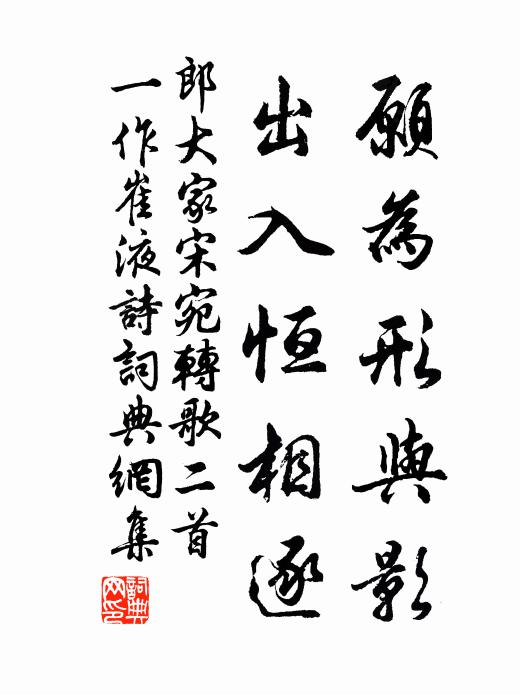 願為形與影
出入恒相逐
郎大家宋宛轉歌二首
一作崔液詩詞典網集
詞典網印